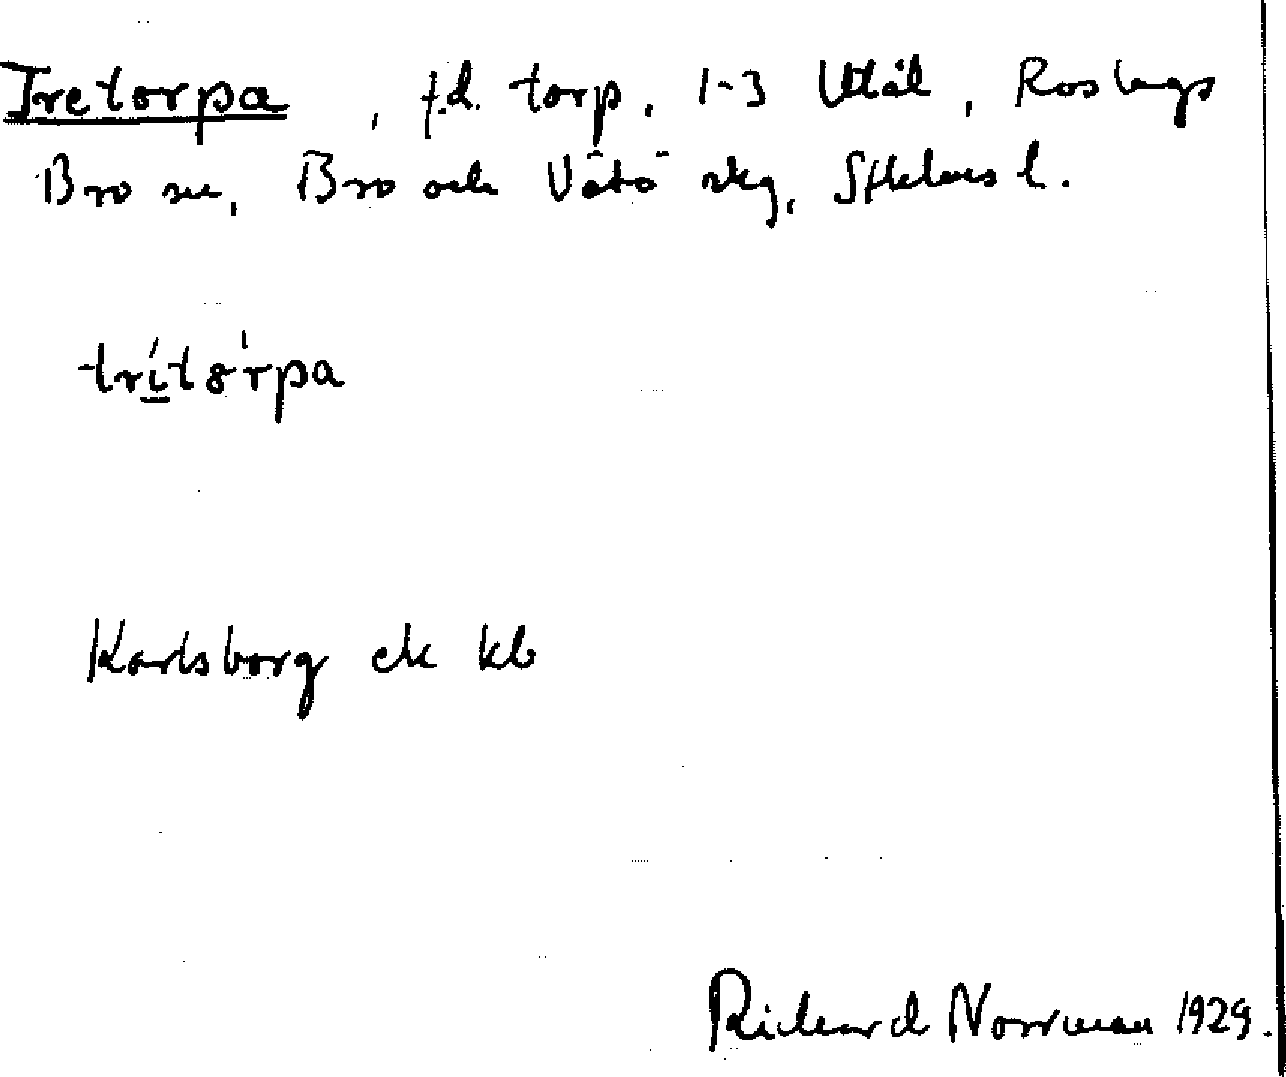 Tretorpa, f.d. torp. 1-3 Utål, Roslags
Bro sn, Bro och Vätö skg, Sthlms l.
trít8̍rpa
Karlsborg ek kb
Richard Norrman 1929.